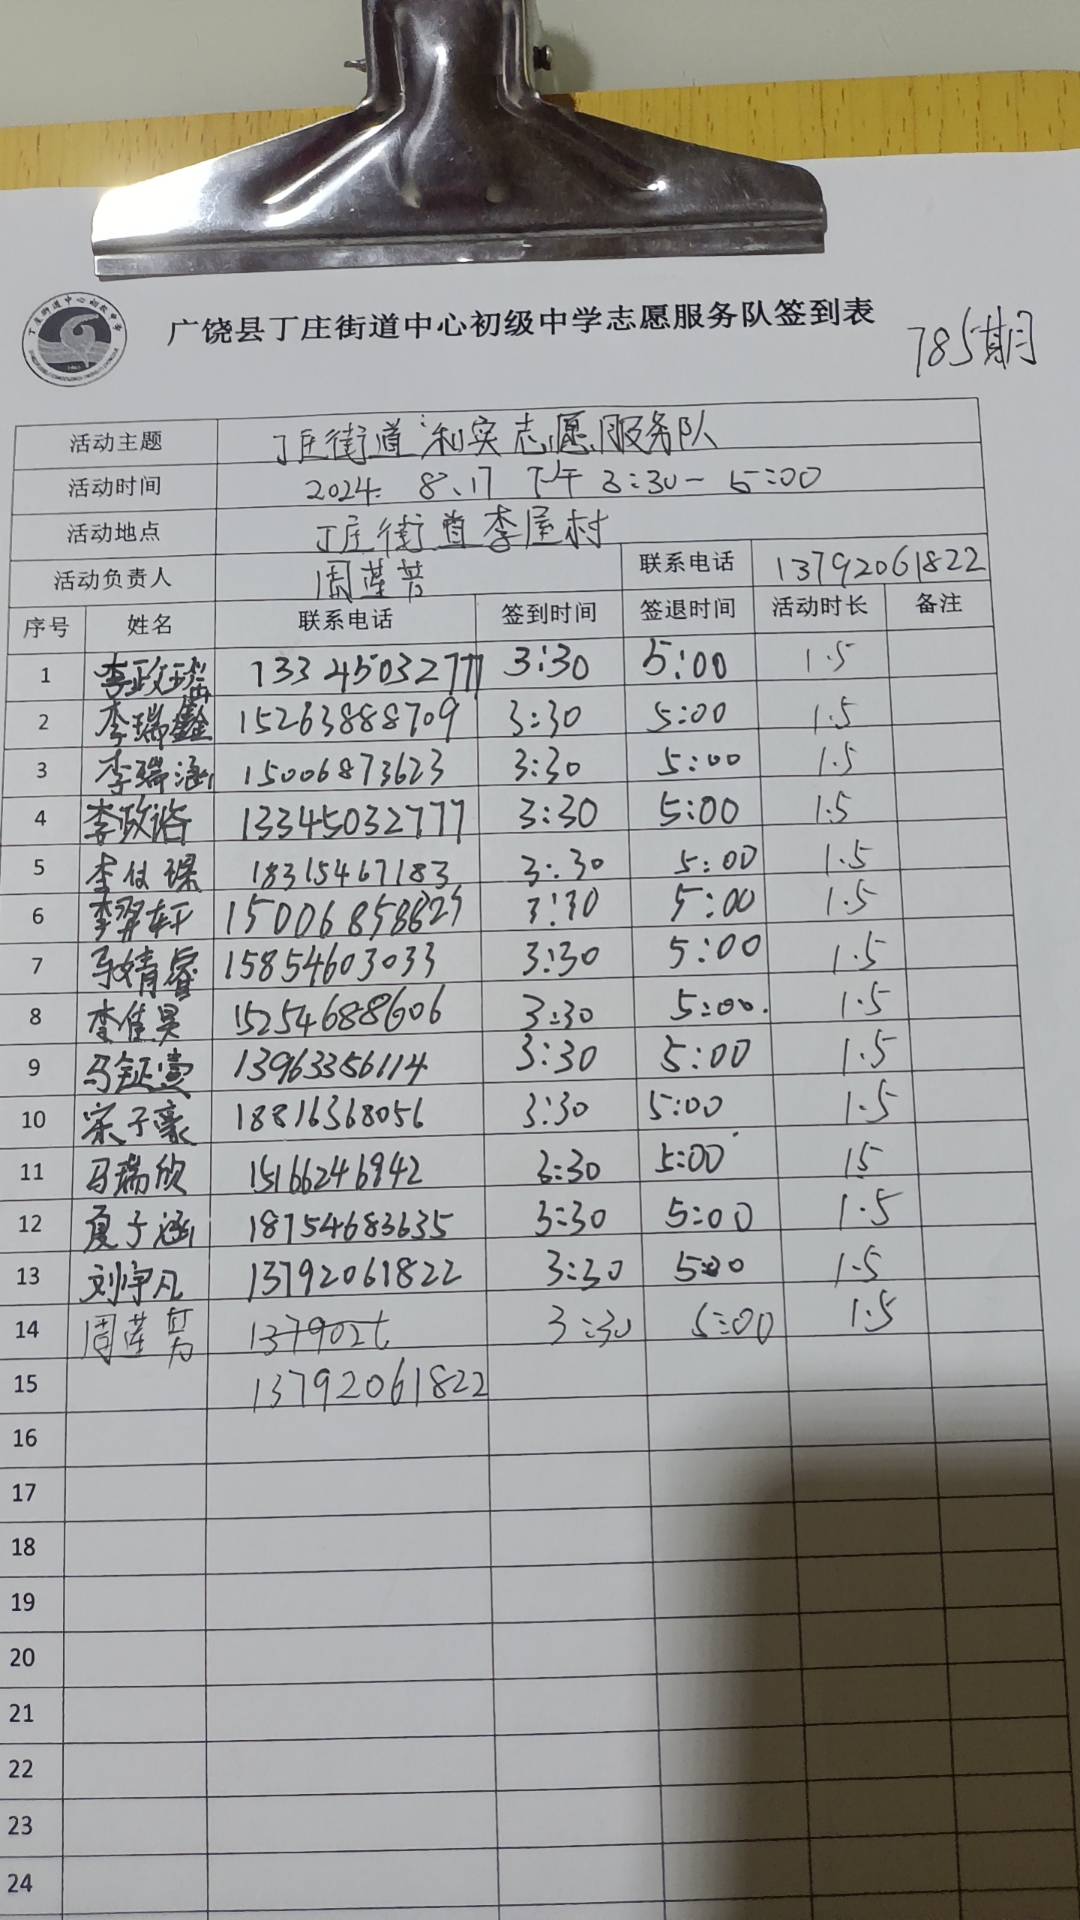 广饶县丁庄街道中心初级中学志愿服务队签到表
785期
活动主题 丁庄街道 和实志愿服务队
活动时间 2024. 8.17 下午 3:30-5:00
活动地点 丁庄街道李屋村
活动负责人 周莲 联系电话 13792061822
序号 姓名 联系电话 签到时间 签退时间 活动时长 备注
1 李政 13345032777 3:30 5:00 1.5
2 李瑞鑫 15263888709 3:30 5:00 1.5
3 李瑞涵 15006873623 3:30 5:00 1.5
4 李政 13345032777 3:30 5:00 1.5
5 李 18315467183 3:30 5:00 1.5
6 李羿轩 3:30 5:00 1.5
7 马婧睿 15854603033 3:30 5:00 1.5
8 李佳昊 15254688606 3:30 5:00. 1.5
9 马 13963356114 3:30 5:00 1.5
10 宋子豪 18816368056 3:30 5:00 1.5
11 马瑞欣 15166246942 3:30 5:00 15
12 夏子涵 18754683635 3:30 5:00 1.5
13 刘宇凡 13792061822 3:30 5:00 1.5
14 周莲 137902 3:30 5:00 1.5
15 13792061822
16
17
18
19
20
21
22
23
24